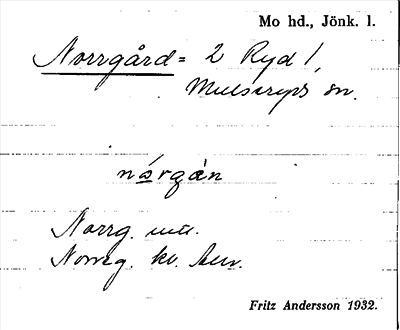 Mo hd., Jönk. l.
Norrgård = 2 Ryd 1,
Mulseryds sn.
nórgàn
Norrg. ma.
Norrg. kv.
Fritz Andersson 1932.